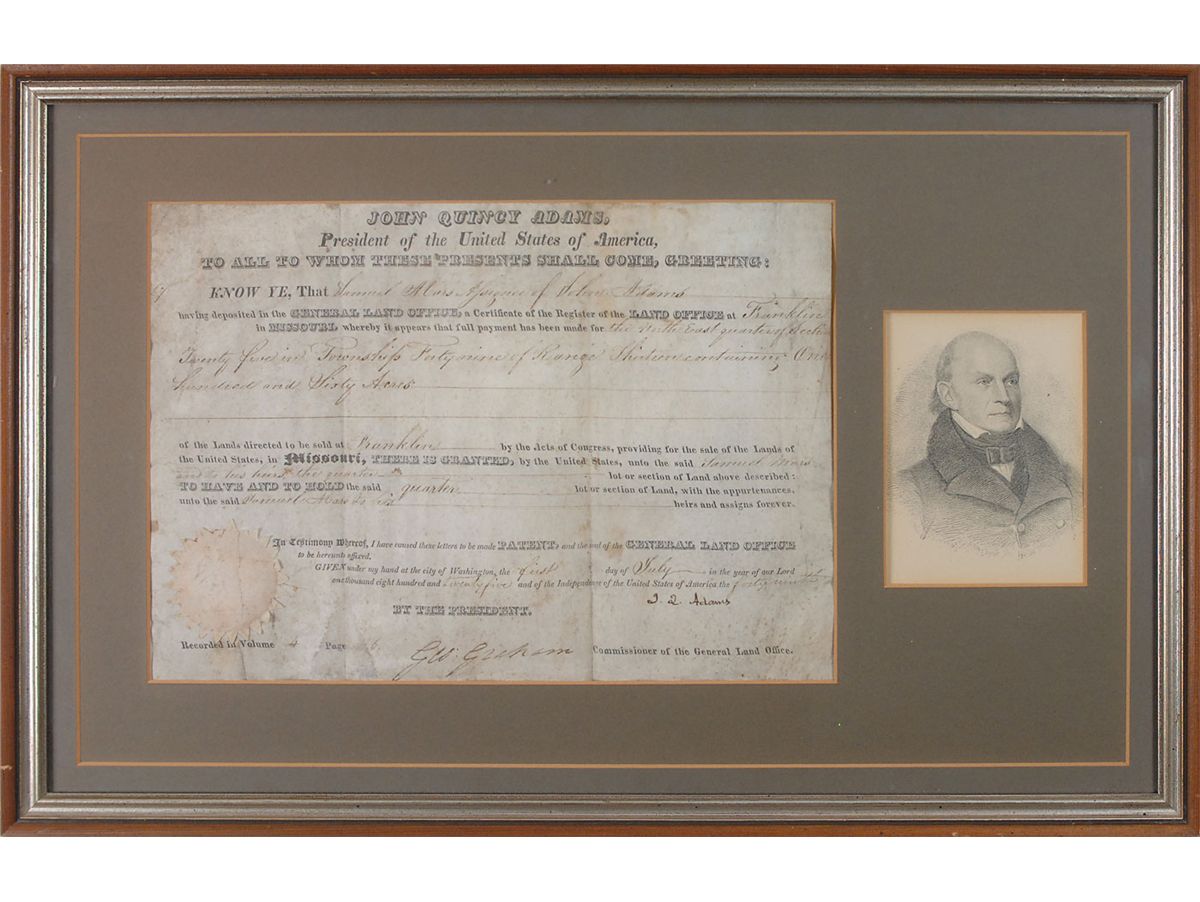 JOHN QUINCY ADAMS,
President of the United States of America,
TO ALL TO WHOM THESE PRESENTS SHALL COME, GREETING:
KNOW YE, That Samuel Mars Assignee of Adams
having deposited in the GENERAL LAND OFFICE, a Certificate of the Register of the LAND OFFICE at Franklin
in MISSOURI, whereby it appears that full payment has been made for the North East quarter of Section
Twenty five in Township Forty nine of Range Thirteen containing One
hundred and Sixty Acres
of the Lands directed to be sold at Franklin by the Acts of Congress, providing for the sale of the Lands of
the United States, in Missouri, THERE IS GRANTED, by the United States, unto the said Samuel Mars
and to his heirs the quarter lot or section of Land above described:
TO HAVE AND TO HOLD the said quarter lot or section of Land, with the appurtenances,
unto the said Samuel Mars to his heirs and assigns forever.
In Testimony Whereof, I have caused these letters to be made PATENT, and the seal of the GENERAL LAND OFFICE
to be hereunto affixed.
GIVEN under my hand at the city of Washington, the first day of July in the year of our Lord
one thousand eight hundred and twenty five and of the Independence of the United States of America the forty ninth
J. Q. Adams
BY THE PRESIDENT.
Recorded in Volume 4 Page
Geo: Graham Commissioner of the General Land Office.